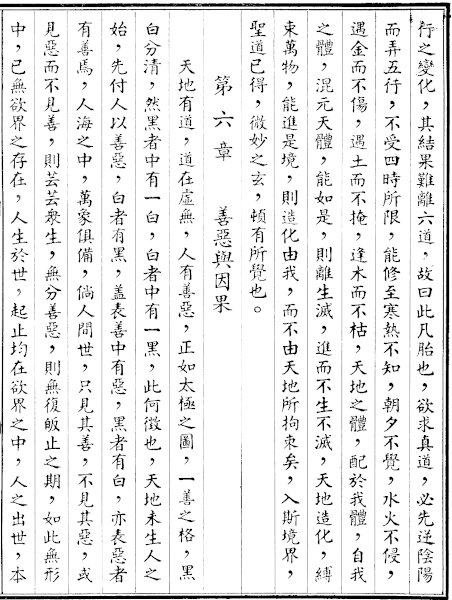 行之變化，其結果難離六道，故曰此凡胎也，欲求真道，必先逆陰陽
而弄五行，不受四時所限，能修至寒熱不知，朝夕不覺，水火不侵，
遇金而不傷，遇土而不掩，逢木而不枯，天地之體，配於我體，自我
之體，混元天體，能如是，則離生滅，進而不生不滅，天地造化，縛
束萬物，能進是境，則造化由我，而不由天地所拘束矣，入斯境界，
聖道已得，微妙之玄，頓有所覺也。
第六章　善惡與因果
天地有道，道在虛無，人有善惡，正如太極之圖，一善之格，黑
白分清，然黑者中有一白，白者中有一黑，此何徵也，天地未生人之
始，先付人以善惡，白者有黑，盖表善中有惡，黑者有白，亦表惡者
有善焉，人海之中，萬象俱備，倘人間世，只見其善，不見其惡，或
見惡而不見善，則芸芸衆生，無分善惡，則無復皈止之期，如此無形
中，已無欲界之存在，人生於世，起止均在欲界之中，人之出世，本